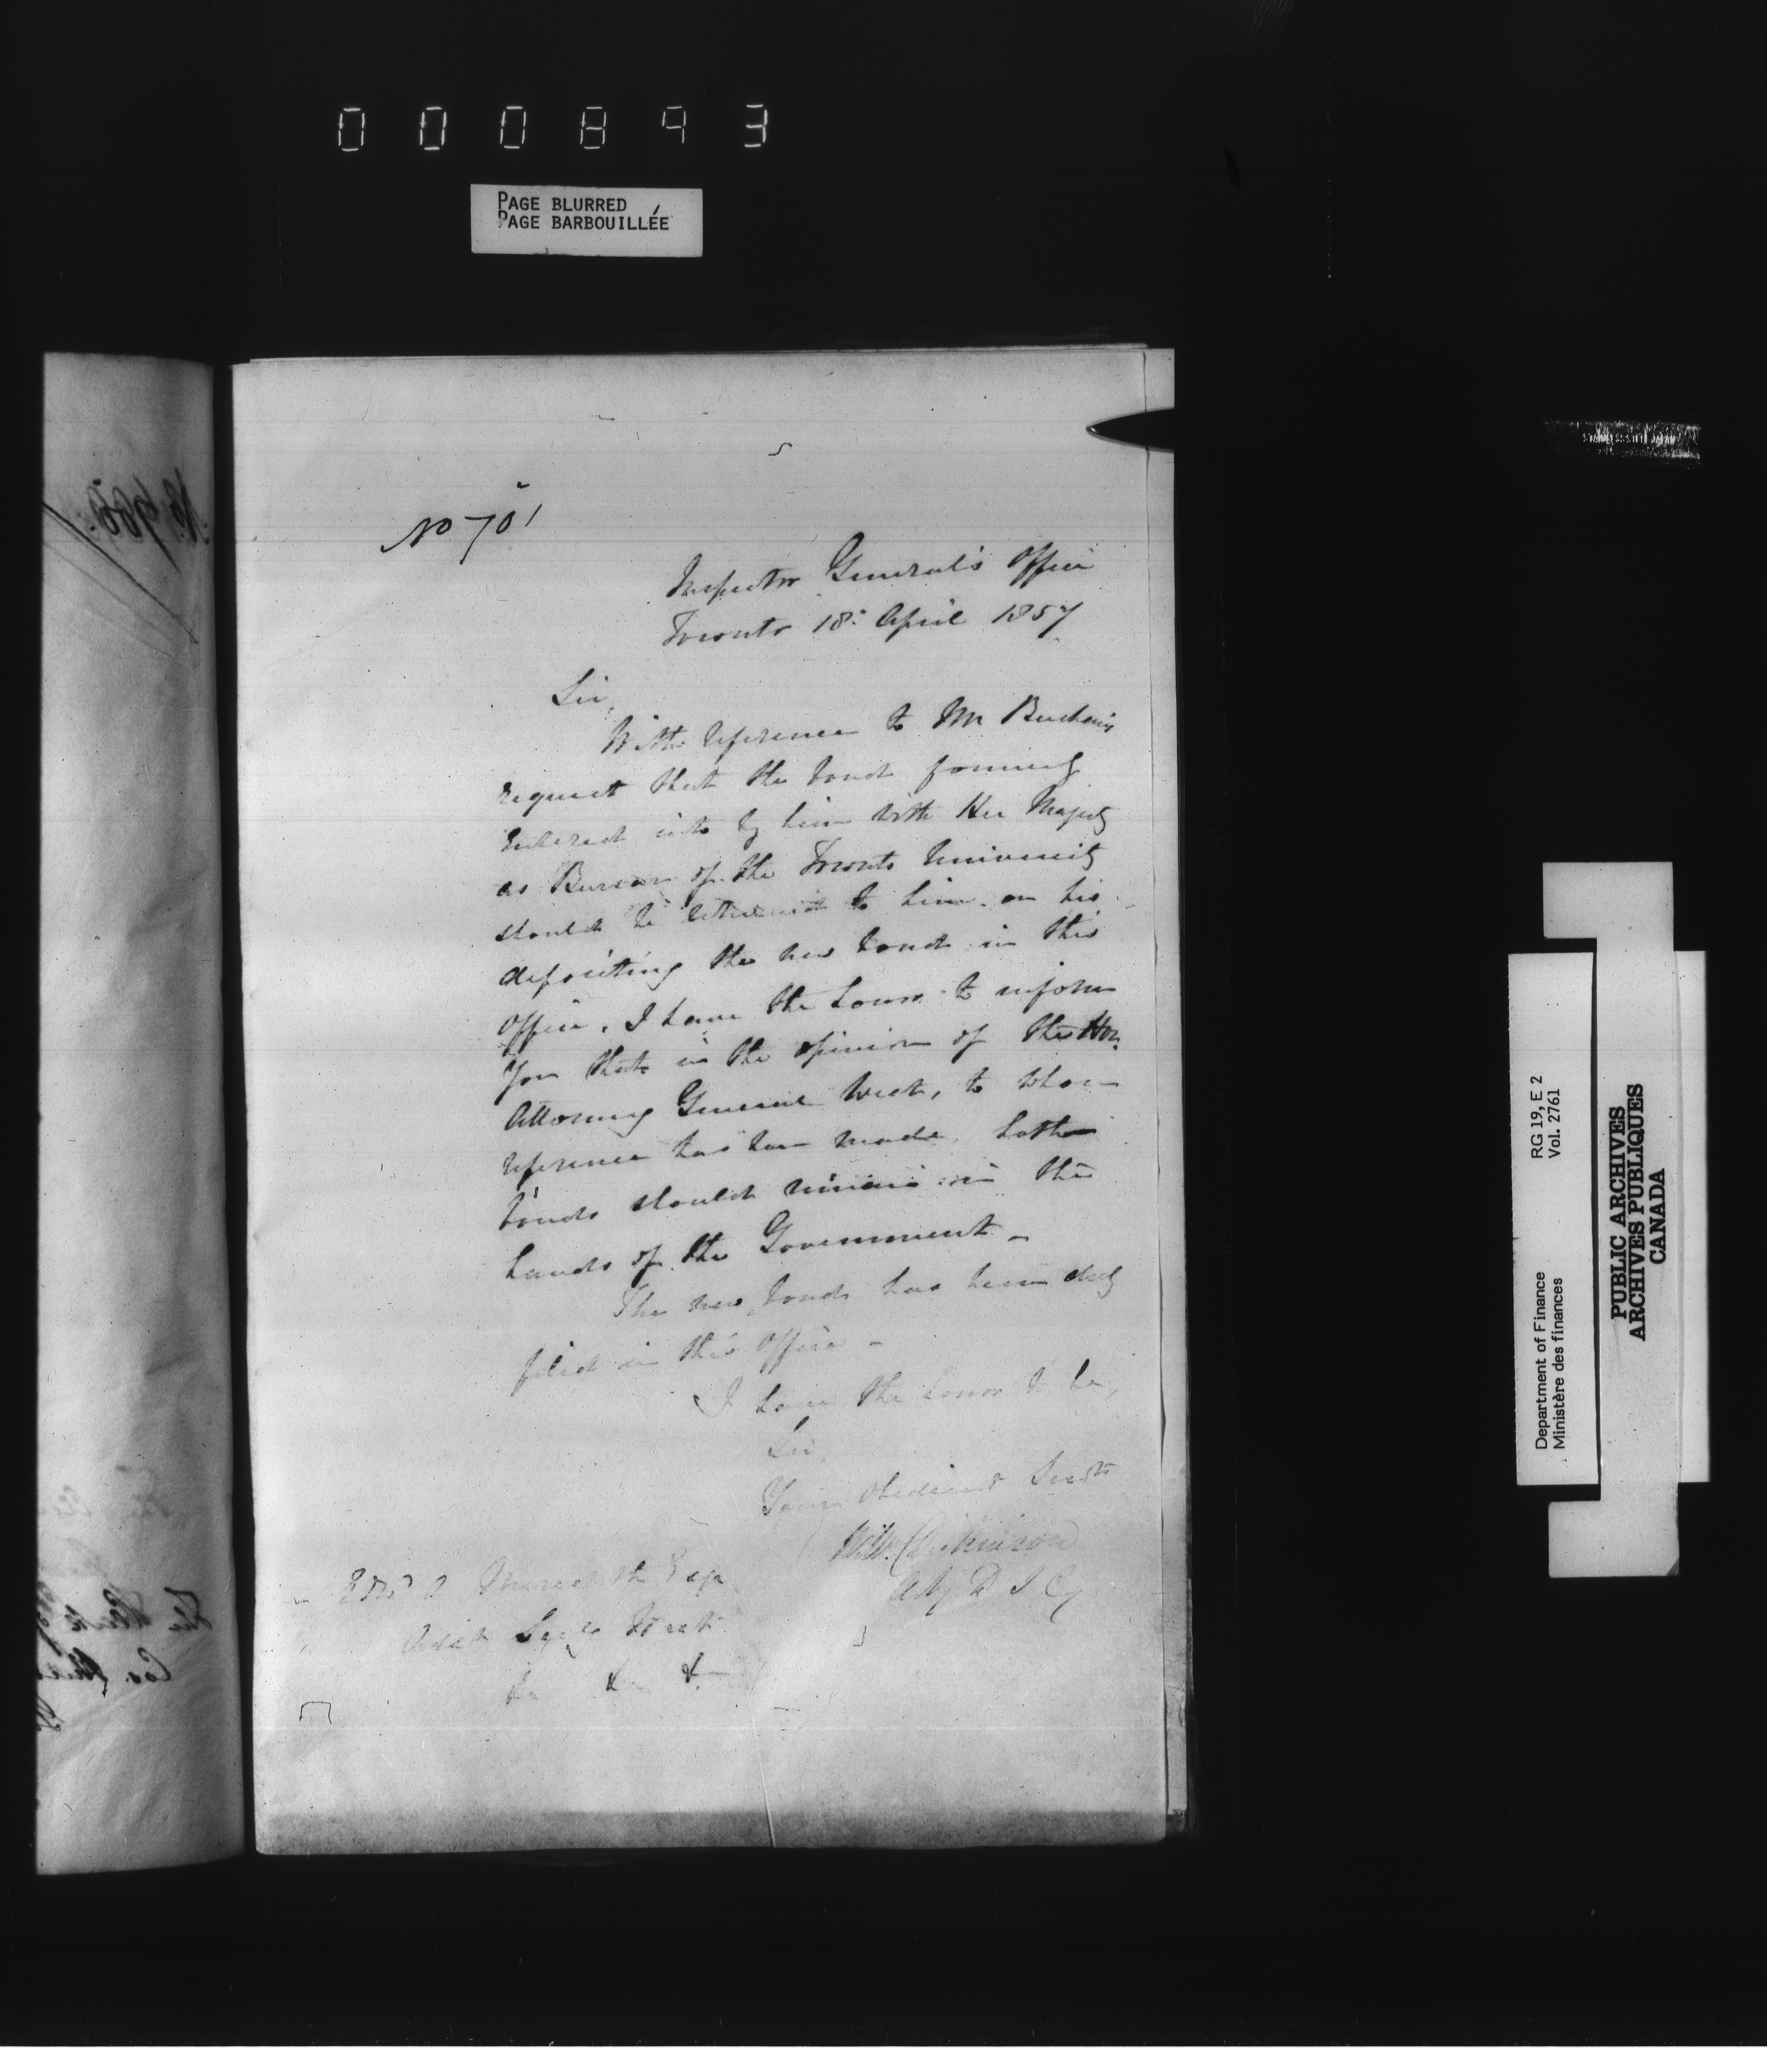 000893
PAGE BLURRED
PAGE BARBOUILLÉE
No 701
Inspector General's Office
Toronto 18: April 1857
Sir,
With reference to Mr Buchan's
request that the bond formerly
entered into by him with Her Majesty
as Bursar of the Toronto University
should be returned to him on his
depositing the new bond in this
Office, I have the honor to inform
you that in the opinion of the Hon.
Attorney General West, to whom
reference has been made, both
bonds should remain in the
hands of the Government _
The new bond has been duly
filed in this Office _
I have the honor to be,
Sir,
Your obedient Servt
Wm. Dickinson
Actg D I G
Edwd A Meredith Esq
Asst Secy West
&c &c &c
RG 19, E 2
Vol. 2761
Department of Finance
Ministère des finances
PUBLIC ARCHIVES
ARCHIVES PUBLIQUES
CANADA